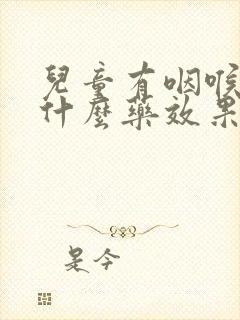 兒童有咽喉
什麼藥效果
是今